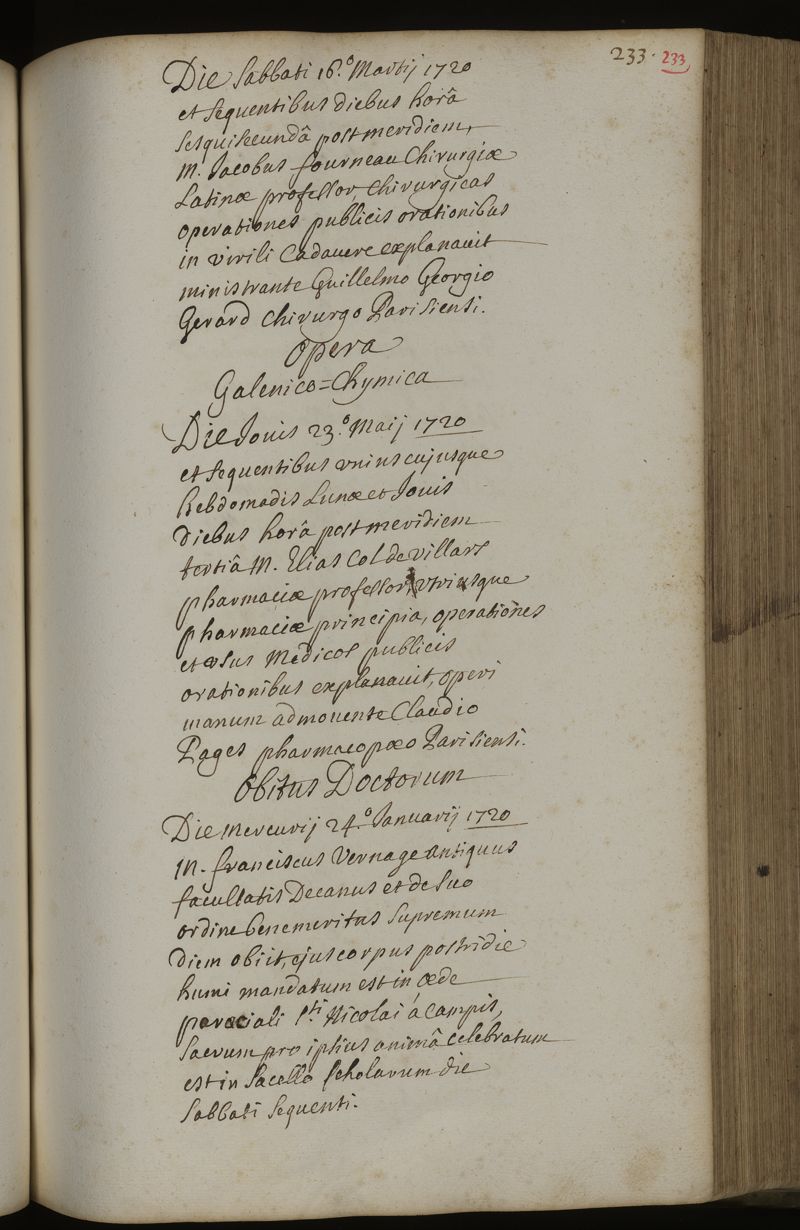 233. 233
Die Sabbati 16.º Martij 1720
et sequentibus diebus horâ
sesquisecundâ post meridiem,
M. Jacobus fourneau Chirurgiæ
Latinæ professor, Chirurgicas
operationes publicis orationibus
in virili Cadavere explanauit
ministrante Guillelmo Georgio
Gerard Chirurgo Parisiensi.
Opera
Galenico=Chymica
Die Jouis 23.º Maij 1720
et sequentibus vniuscujusque
hebdomadis Lunæ et Jouis
diebus horâ post meridiem
tertiâ M. Elias Col de villars
pharmaciæ professor, vtriusque
pharmaciæ principia, operationes
et vsus Medicos publicis
orationibus explanauit, operi
manum admouente Claudio
Pages pharmacopæo Parisiensi.
Obitus Doctorum
Die Mercurij 24.º Januarij 1720
M. franciscus Vernage antiquus
facultatis Decanus et de suo
ordine benemeritus supremum
diem obiit, ejus corpus postridie
humi mandatum est in æde
parœciali s.ti Nicolai á Campis,
sacrum pro ipsius animâ celebratum
est in sacello scholarum die
sabbati sequenti.